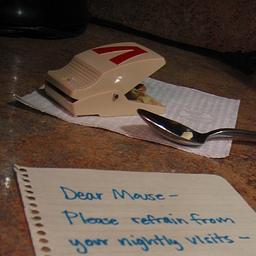 Dear Mouse -
Please refrain from
your nightly visits -